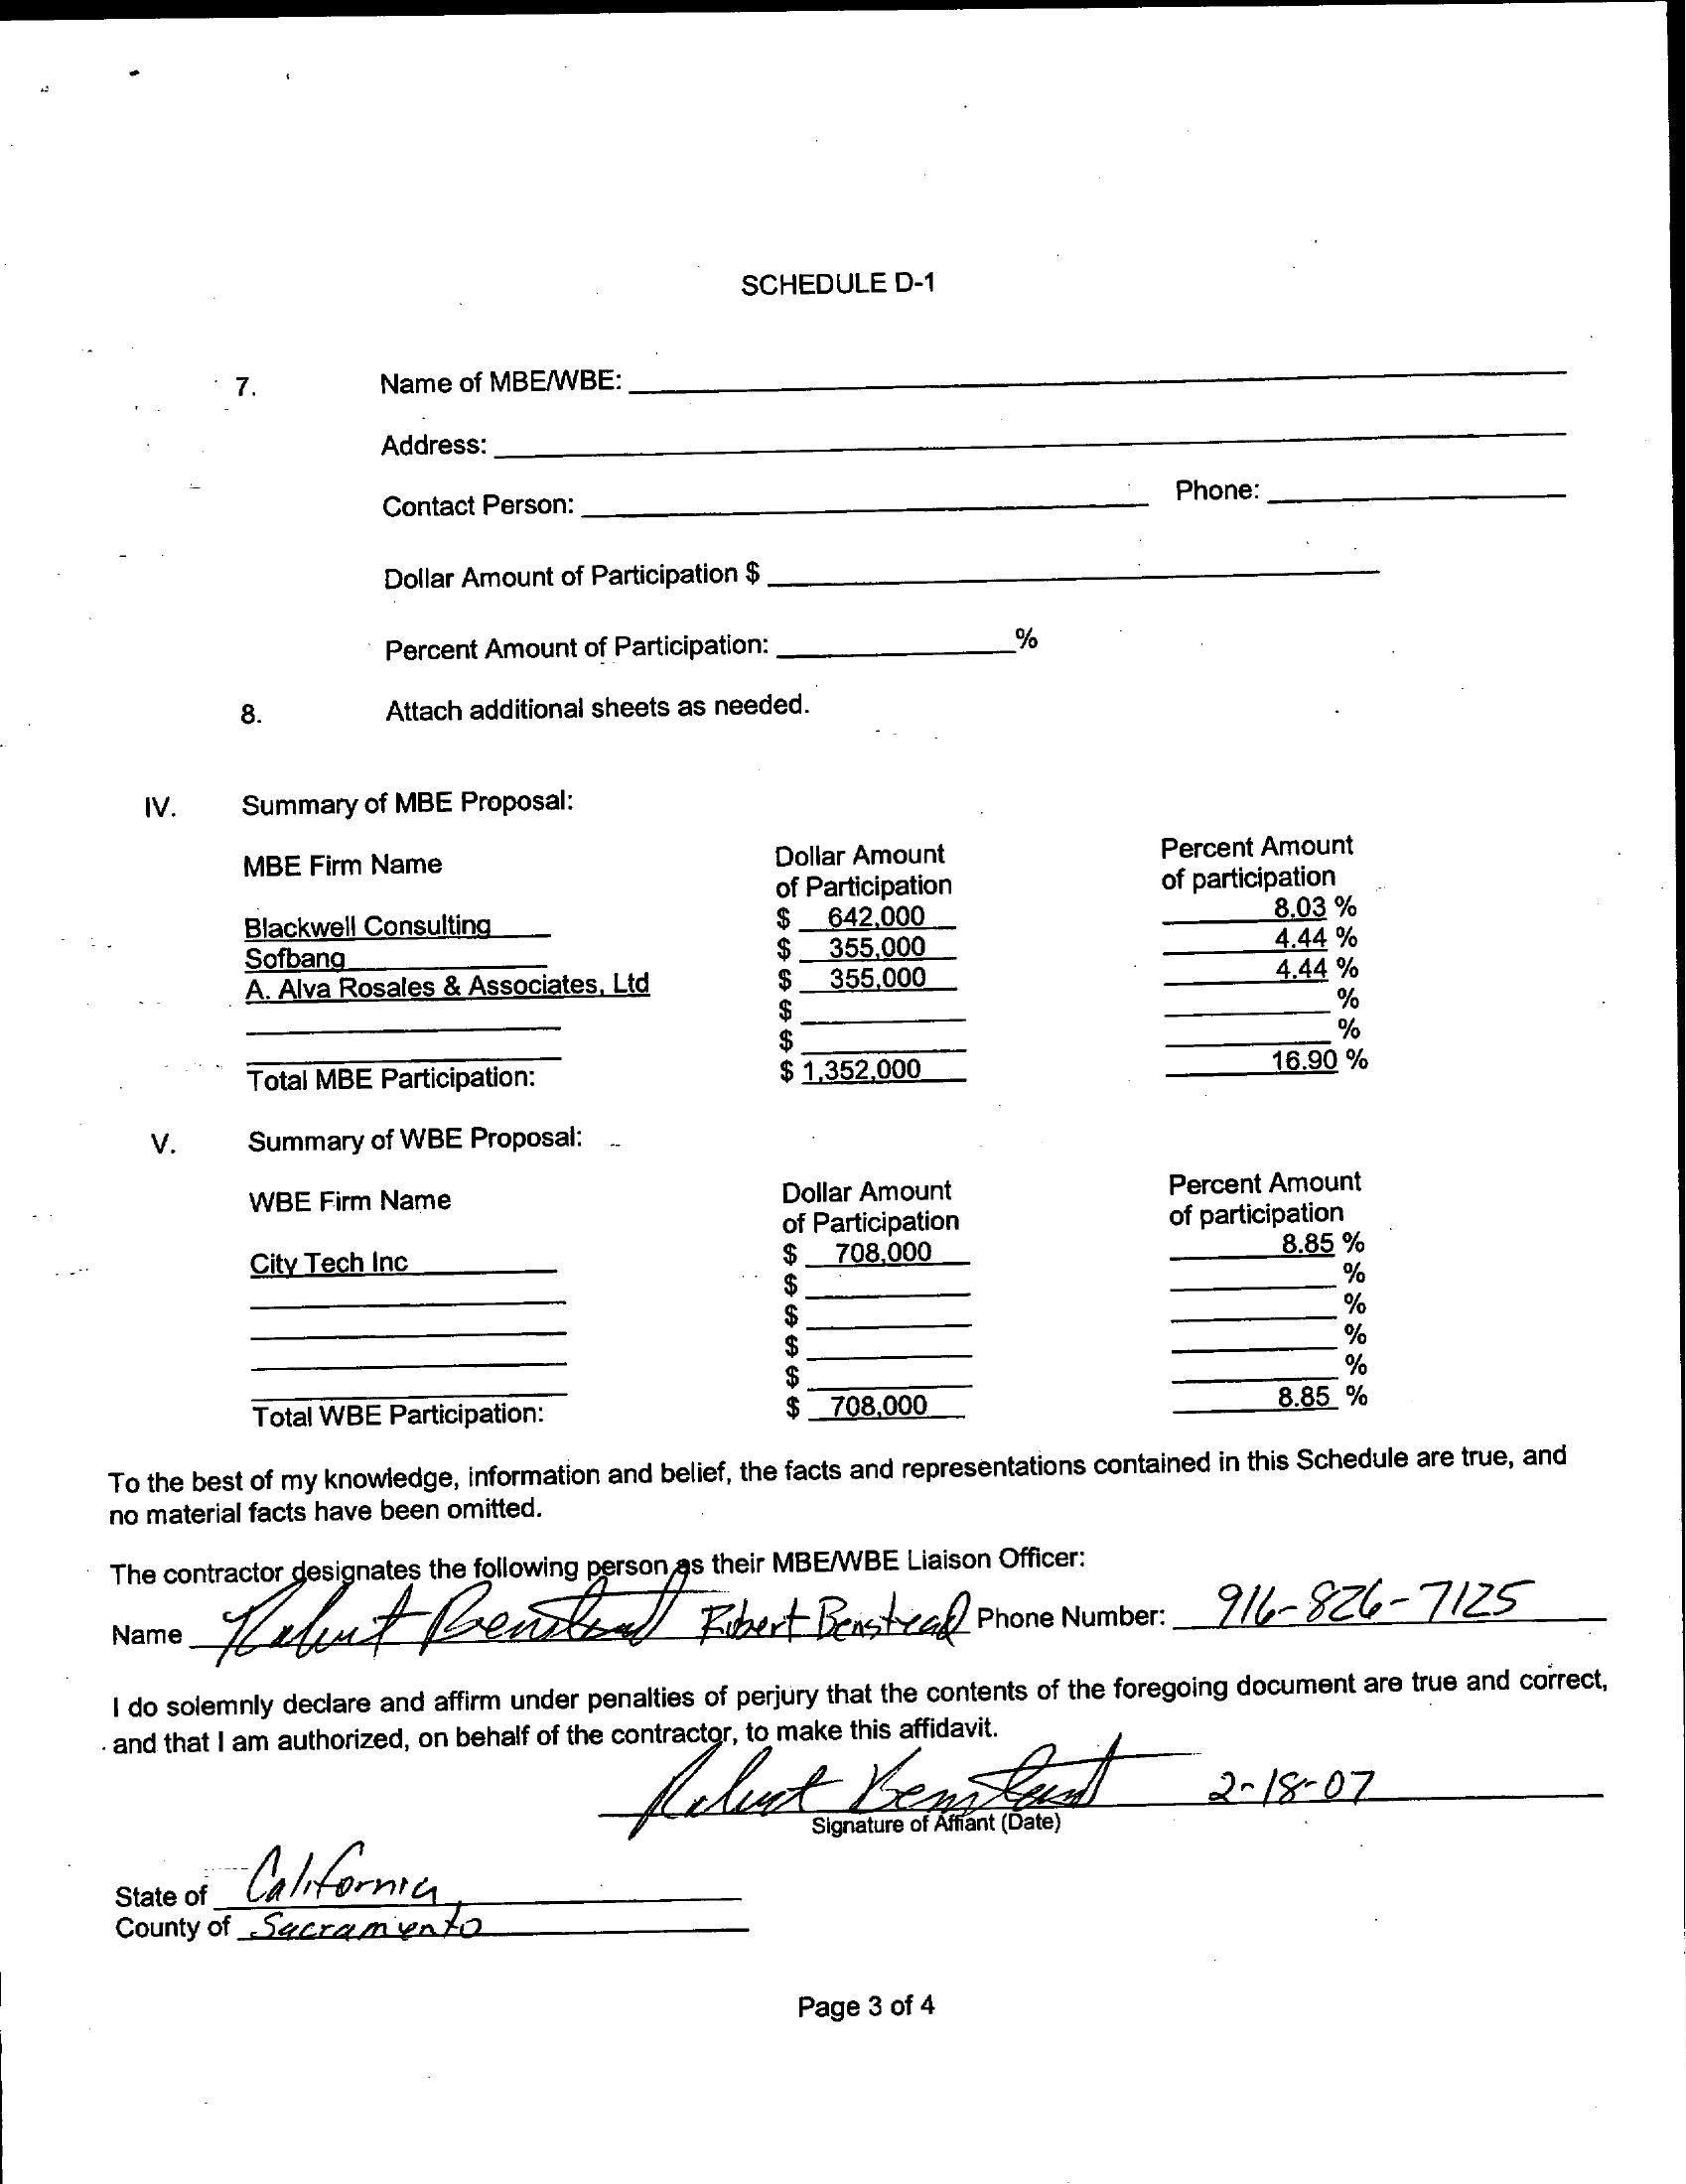 SCHEDULE D-1
7. Name of MBE/WBE:
Address:
Contact Person: Phone:
Dollar Amount of Participation $
Percent Amount of Participation: %
8. Attach additional sheets as needed.
IV. Summary of MBE Proposal:
MBE Firm Name Dollar Amount Percent Amount
of Participation of participation
Blackwell Consulting $ 642,000 8.03 %
Sofbang $ 355,000 4.44 %
A. Alva Rosales & Associates, Ltd $ 355,000 4.44 %
$ %
$ %
Total MBE Participation: $ 1,352,000 16.90 %
V. Summary of WBE Proposal:
WBE Firm Name Dollar Amount Percent Amount
of Participation of participation
City Tech Inc $ 708,000 8.85 %
$ %
$ %
$ %
$ %
Total WBE Participation: $ 708,000 8.85 %
To the best of my knowledge, information and belief, the facts and representations contained in this Schedule are true, and
no material facts have been omitted.
The contractor designates the following person as their MBE/WBE Liaison Officer:
Name Robert Benstead Robert Benstead Phone Number: 916-826-7125
I do solemnly declare and affirm under penalties of perjury that the contents of the foregoing document are true and correct,
and that I am authorized, on behalf of the contractor, to make this affidavit.
Robert Benstead 2-18-07
Signature of Affiant (Date)
State of California
County of Sacramento
Page 3 of 4